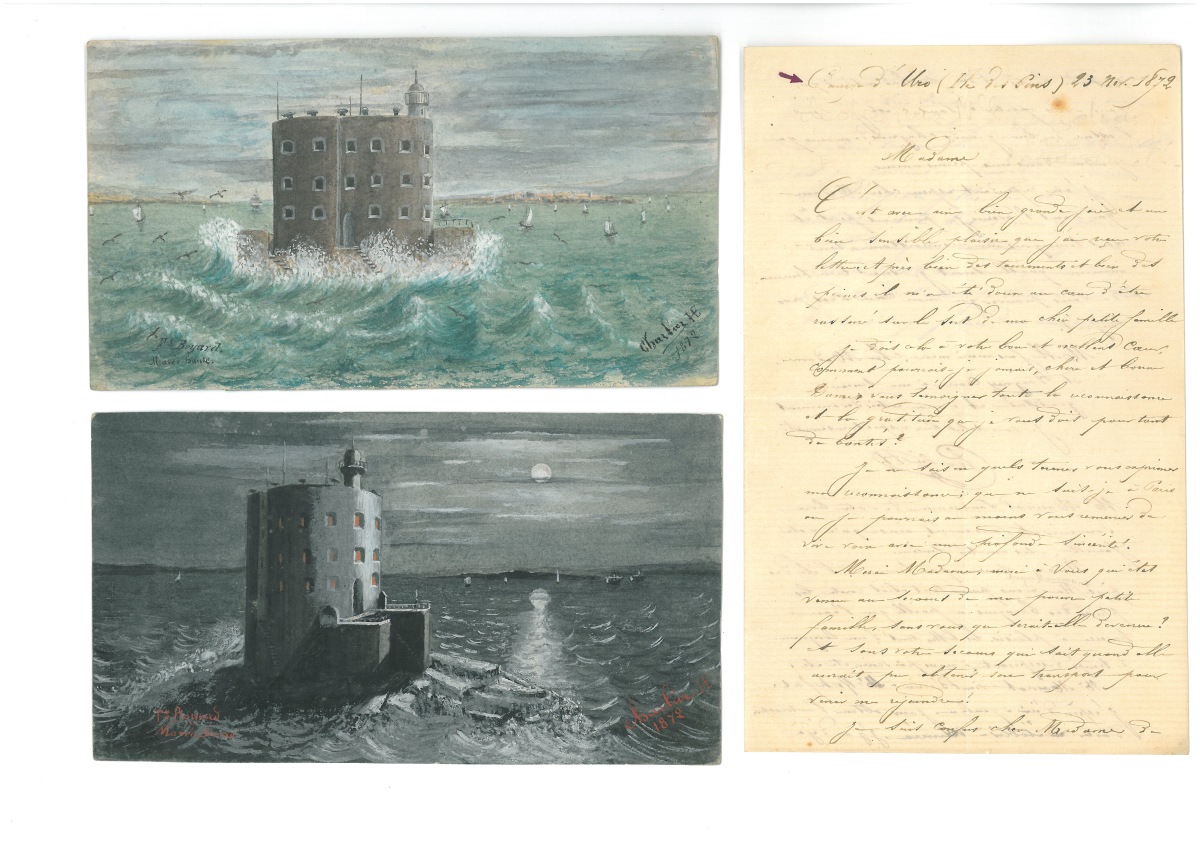 Ft Boyard.
Marée haute.
Chartier H
1872
Ft Boyard
Marée basse
Chartier H
1872
d'Uro (Ile des Pins) 23 Nov. 1872
Madame
C'est avec une bien grande joie et un
bien sensible plaisir que j'ai reçu votre
lettre, Après bien des tourments et bien des
peines il m'a été doux au cœur d'être
rassuré sur le sort de ma chère petite famille
je dois cela à votre bon et excellent Cœur,
Comment pourrais-je jamais, chère et bonne
Dame, vous témoigner toute la reconnaissance
et la gratitude que je vous dois pour tant
de bontés?
Je ne sais en quels termes vous exprimer
ma reconnaissance; que ne suis-je à Paris
où je pourrais au moins vous remercier de
vive voix avec une profonde sincérité.
Merci Madame, merci à Vous qui êtes
venue au secours de ma pauvre petite
famille, sans vous que serait-elle devenue?
et sans votre secours qui sait quand elle
aurait pu obtenir son transport pour
venir me rejoindre.
Je suis confus chère Madame de